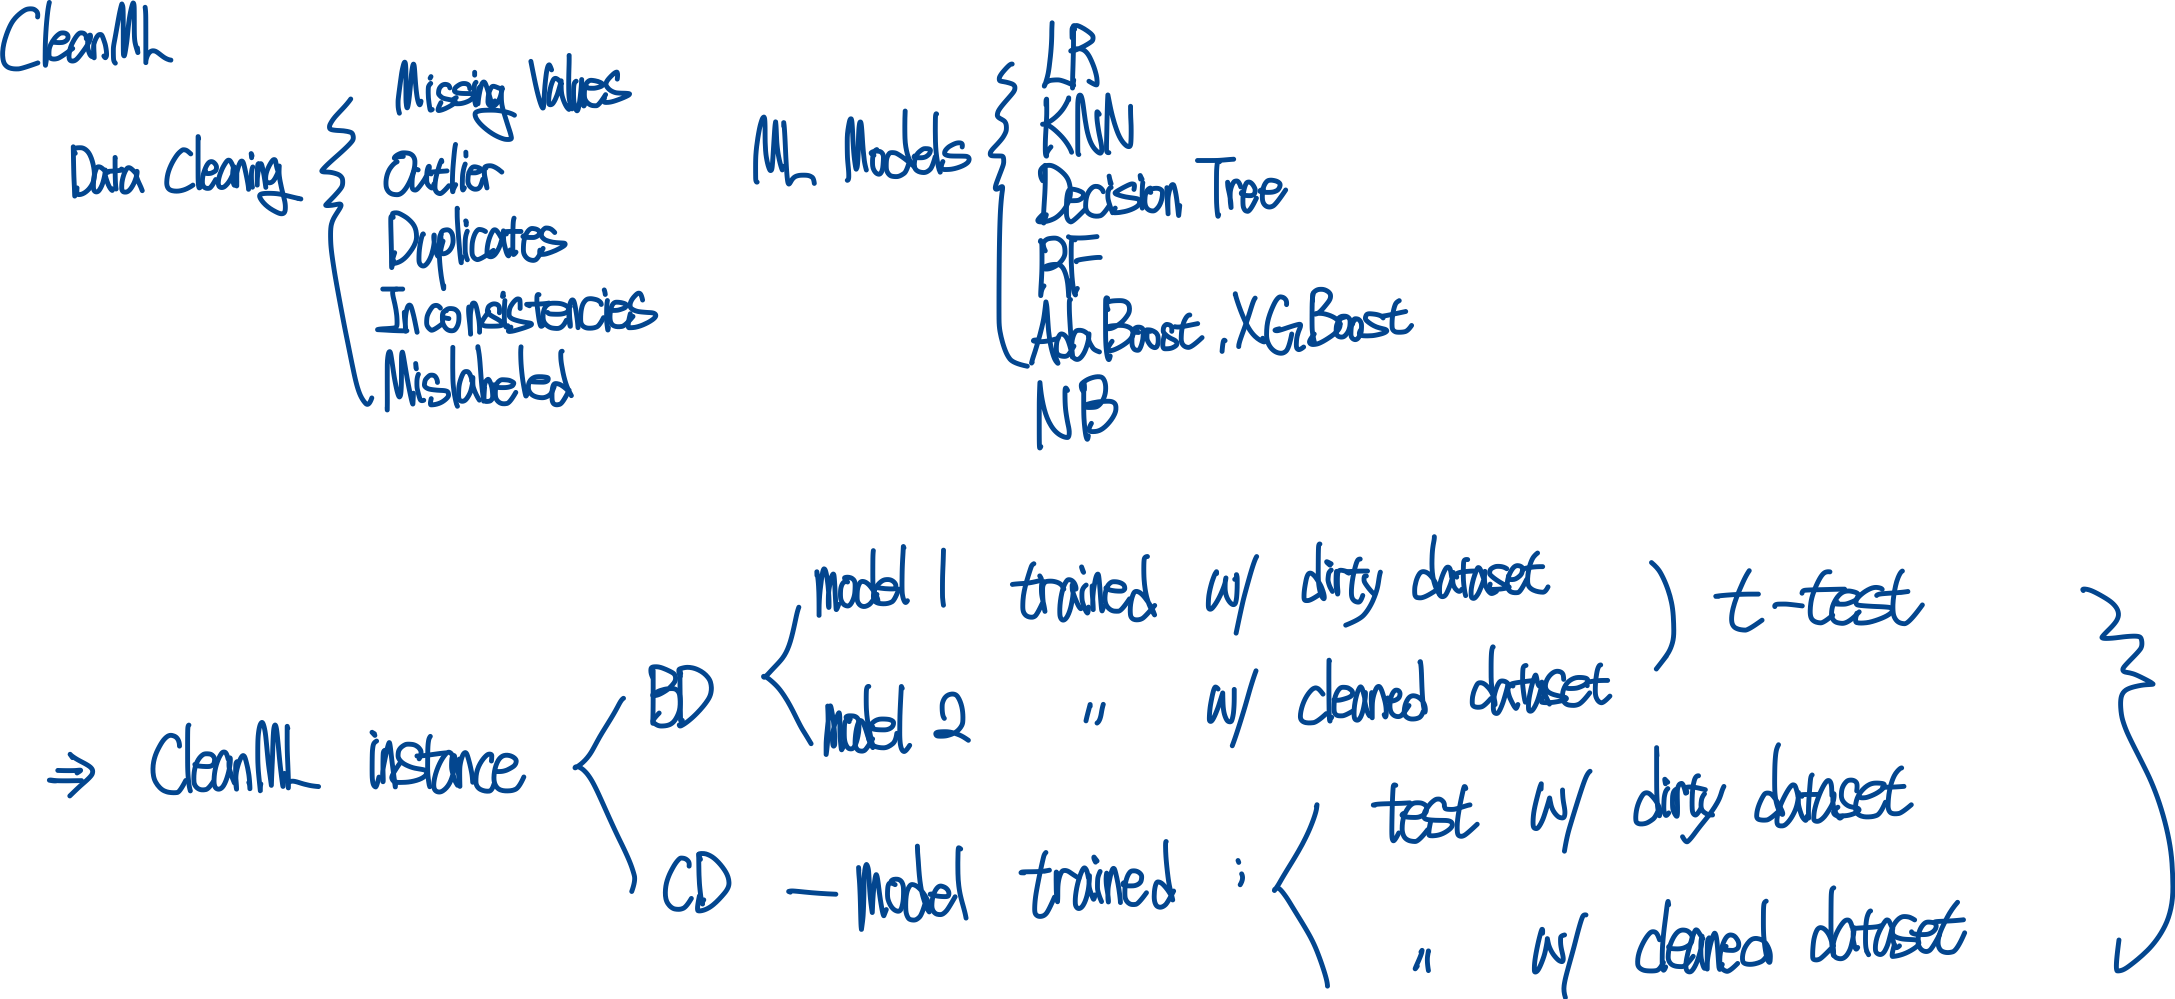 CleanML
Data Cleaning
Missing Values
Outlier
Duplicates
Inconsistencies
Mislabeled
ML Models
LR
KNN
Decision Tree
RF
AdaBoost, XGBoost
NB
⇒ CleanML instance
BD
model 1 trained w/ dirty dataset
model 2 " w/ cleaned dataset
t-test
CD - model trained :
test w/ dirty dataset
" w/ cleaned dataset